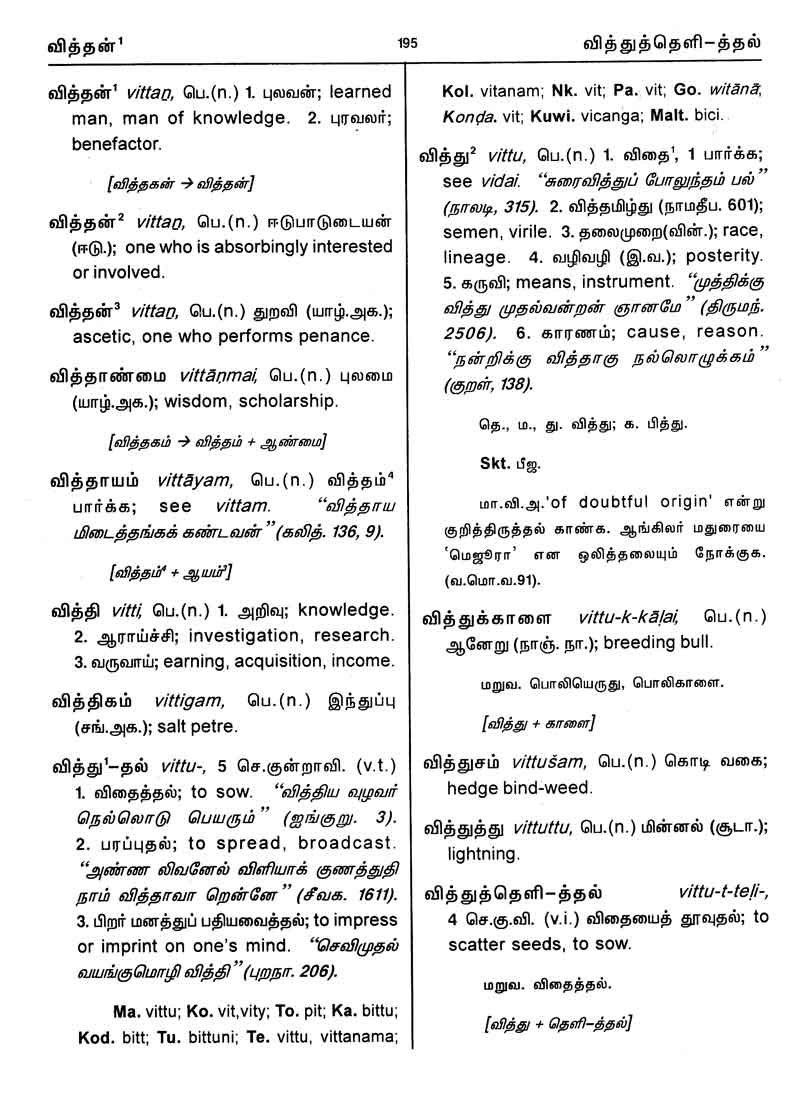 வித்தன்¹
195
வித்துத்தெளி–த்தல்
வித்தன்¹ vittaṉ, பெ.(n.) 1. புலவன்; learned
man, man of knowledge. 2. புரவலர்;
benefactor.
[வித்தகன் → வித்தன்]
வித்தன்² vittaṉ, பெ.(n.) ஈடுபாடுடையன்
(ஈடு.); one who is absorbingly interested
or involved.
வித்தன்³ vittaṉ, பெ.(n.) துறவி (யாழ்.அக.);
ascetic, one who performs penance.
வித்தாண்மை vittāṇmai, பெ.(n.) புலமை
(யாழ்.அக.); wisdom, scholarship.
[வித்தகம் → வித்தம் + ஆண்மை]
வித்தாயம் vittāyam, பெ.(n.) வித்தம்⁴
பார்க்க; see vittam. “வித்தாய
மிடைத்தங்கக் கண்டவன்” (கலித். 136, 9).
[வித்தம்⁴ + ஆயம்³]
வித்தி vitti, பெ.(n.) 1. அறிவு; knowledge.
2. ஆராய்ச்சி; investigation, research.
3. வருவாய்; earning, acquisition, income.
வித்திகம் vittigam, பெ.(n.) இந்துப்பு
(சங்.அக.); salt petre.
வித்து¹–தல் vittu-, 5 செ.குன்றாவி. (v.t.)
1. விதைத்தல்; to sow. “வித்திய வுழவர்
நெல்லொடு பெயரும்” (ஐங்குறு. 3).
2. பரப்புதல்; to spread, broadcast.
“அண்ண லிவனேல் விளியாக் குணத்துதி
நாம் வித்தாவா றென்னே” (சீவக. 1611).
3. பிறர் மனத்துப் பதியவைத்தல்; to impress
or imprint on one's mind. “செவிமுதல்
வயங்குமொழி வித்தி” (புறநா. 206).
Ma. vittu; Ko. vit,vity; To. pit; Ka. bittu;
Kod. bitt; Tu. bittuni; Te. vittu, vittanama;
Kol. vitanam; Nk. vit; Pa. vit; Go. witānā;
Konḍa. vit; Kuwi. vicanga; Malt. bici.
வித்து² vittu, பெ.(n.) 1. விதை¹, 1 பார்க்க;
see vidai. “சுரைவித்துப் போலுந்தம் பல்”
(நாலடி, 315). 2. வித்தமிழ்து (நாமதீப. 601);
semen, virile. 3. தலைமுறை(வின்.); race,
lineage. 4. வழிவழி (இ.வ.); posterity.
5. கருவி; means, instrument. “முத்திக்கு
வித்து முதல்வன்றன் ஞானமே” (திருமந்.
2506). 6. காரணம்; cause, reason.
“நன்றிக்கு வித்தாகு நல்லொழுக்கம்”
(குறள், 138).
தெ., ம., து. வித்து; க. பித்து.
Skt. பீஜ.
மா.வி.அ.'of doubtful origin' என்று
குறித்திருத்தல் காண்க. ஆங்கிலர் மதுரையை
‘மெஜூரா’ என ஒலித்தலையும் நோக்குக.
(வ.மொ.வ.91).
வித்துக்காளை vittu-k-kāḷai, பெ.(n.)
ஆனேறு (நாஞ். நா.); breeding bull.
மறுவ. பொலியெருது, பொலிகாளை.
[வித்து + காளை]
வித்துசம் vittušam, பெ.(n.) கொடி வகை;
hedge bind-weed.
வித்துத்து vittuttu, பெ.(n.) மின்னல் (சூடா.);
lightning.
வித்துத்தெளி–த்தல் vittu-t-teḷi-,
4 செ.கு.வி. (v.i.) விதையைத் தூவுதல்; to
scatter seeds, to sow.
மறுவ. விதைத்தல்.
[வித்து + தெளி–த்தல்]